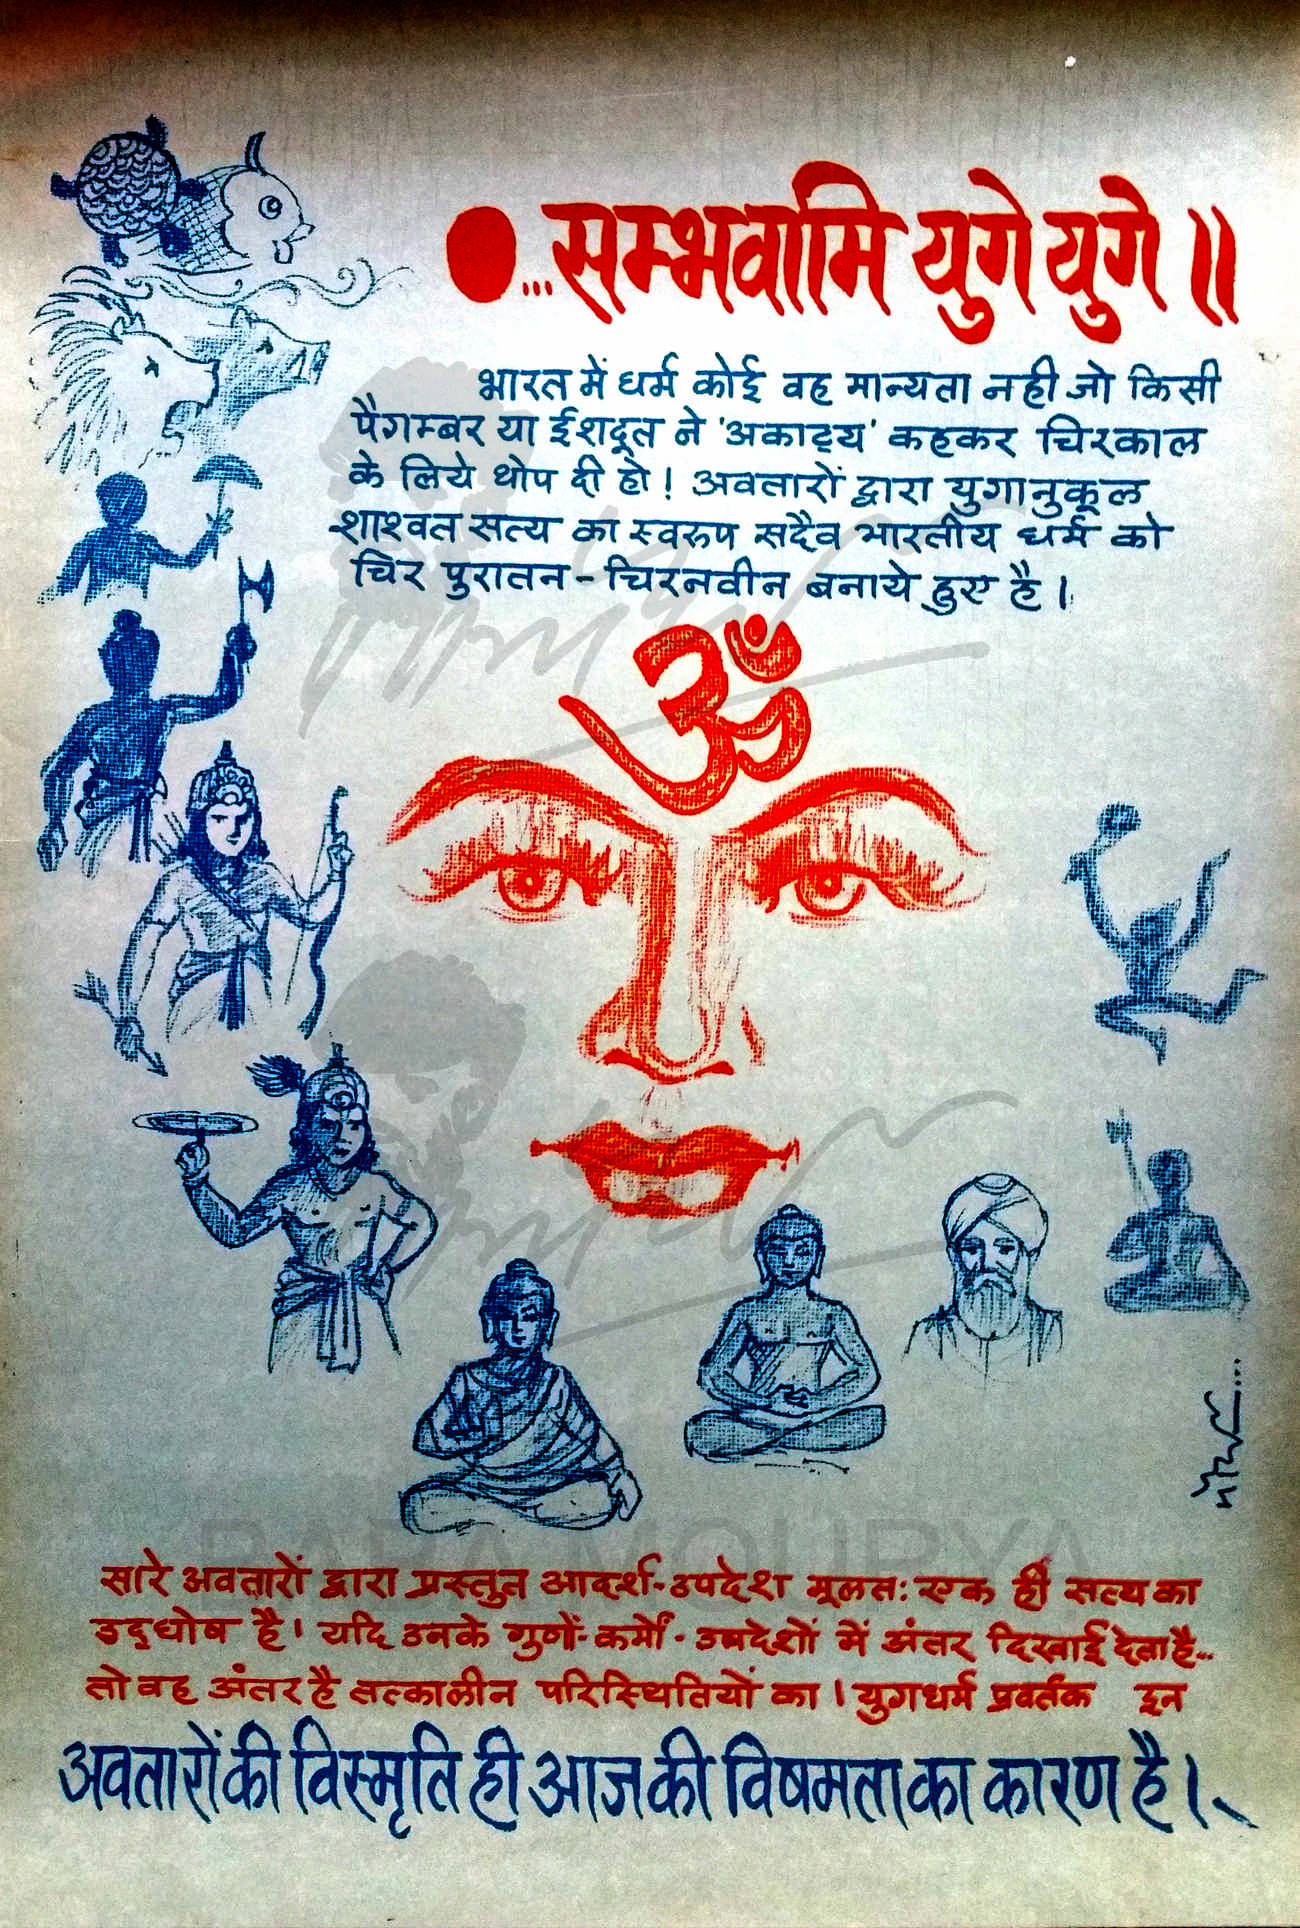 ...सम्भवामि युगे युगे ॥
भारत में धर्म कोई वह मान्यता नही जो किसी
पैगम्बर या ईशदूत ने 'अकाट्य' कहकर चिरकाल
के लिये थोप दी हो ! अवतारों द्वारा युगानुकूल
शाश्वत सत्य का स्वरुप सदैव भारतीय धर्म को
चिर पुरातन - चिरनवीन बनाये हुए है ।
ॐ
सारे अवतारों द्वारा प्रस्तुत आदर्श-उपदेश मूलतः एक ही सत्य का
उद्घोष है। यदि उनके गुणों-कर्मों-उपदेशों में अंतर दिखाई देता है...
तो वह अंतर है तत्कालीन परिस्थितियों का । युगधर्म प्रवर्तक इन
अवतारों की विस्मृति ही आज की विषमता का कारण है ।
BABA MOURYA